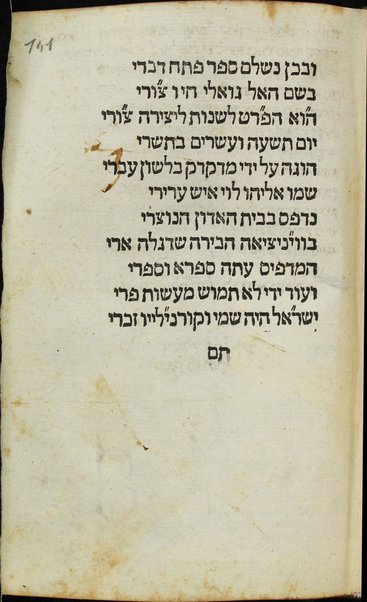 141
ובכן נשלם ספר פתח דברי
בשם האל גואלי חי ו צ״ורי
ה״וא הפ״רט לשנות ליצירה צ״ורי
יום תשעה ועשרים בתשרי
הוגה על ידי מדקדק בלשון עברי
שמו אליהו לוי איש ערירי
נדפס בבית האדון הנוצרי
בוויניציאה הבירה שדגלה ארי
המדפיס עתה ספרא וספרי
ועוד ידי לא תמוש מעשות פרי
ישראל היה שמי וקורנילייו זכרי
תם